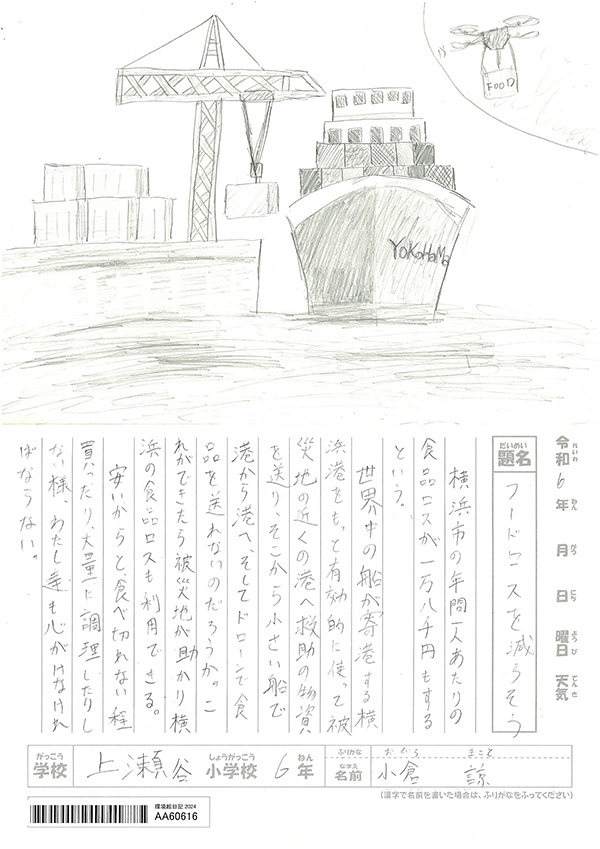 FOOD
YoKoHaMa
令和6年 月 日 曜日 天気
れいわ ねん がつ にち ようび てんき
だいめい
題名
フードロスを減らそう
横浜市の年間一人あたりの
食品ロスが一万八千円もする
という。
世界中の船が寄港する横
浜港をもっと有効的に使って被
災地の近くの港へ救助の物資
を送り、そこから小さい船で
港から港へ、そしてドローンで食
品を送れないのだろうか。こ
れができたら被災地が助かり横
浜の食品ロスも利用できる。
安いからと、食べ切れない程
買ったり、大量に調理したりし
ない様、わたし達も心がけなけれ
ばならない。
がっこう しょうがっこう ねん
学校 上瀬谷 小学校 6年
ふりがな おぐら まこと
なまえ
名前 小倉 諒
(漢字で名前を書いた場合は、ふりがなをふってください)
環境絵日記 2024
AA60616